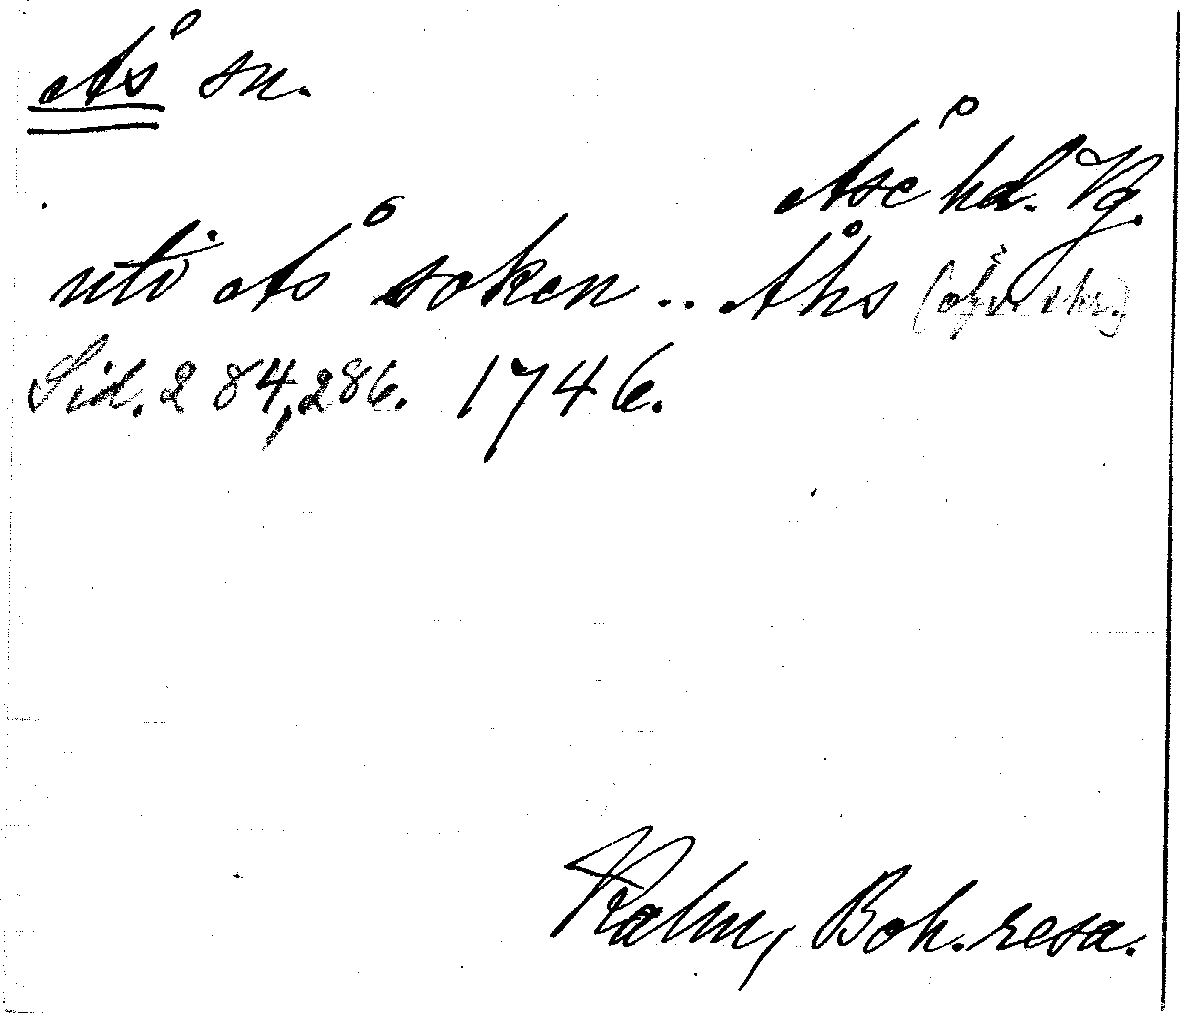 Ås sn.
Åse hd. Vg.
uti Ås soken .. Åhs (öfverskr.)
Sid. 284, 286. 1746.
Kalm, Boh. resa.